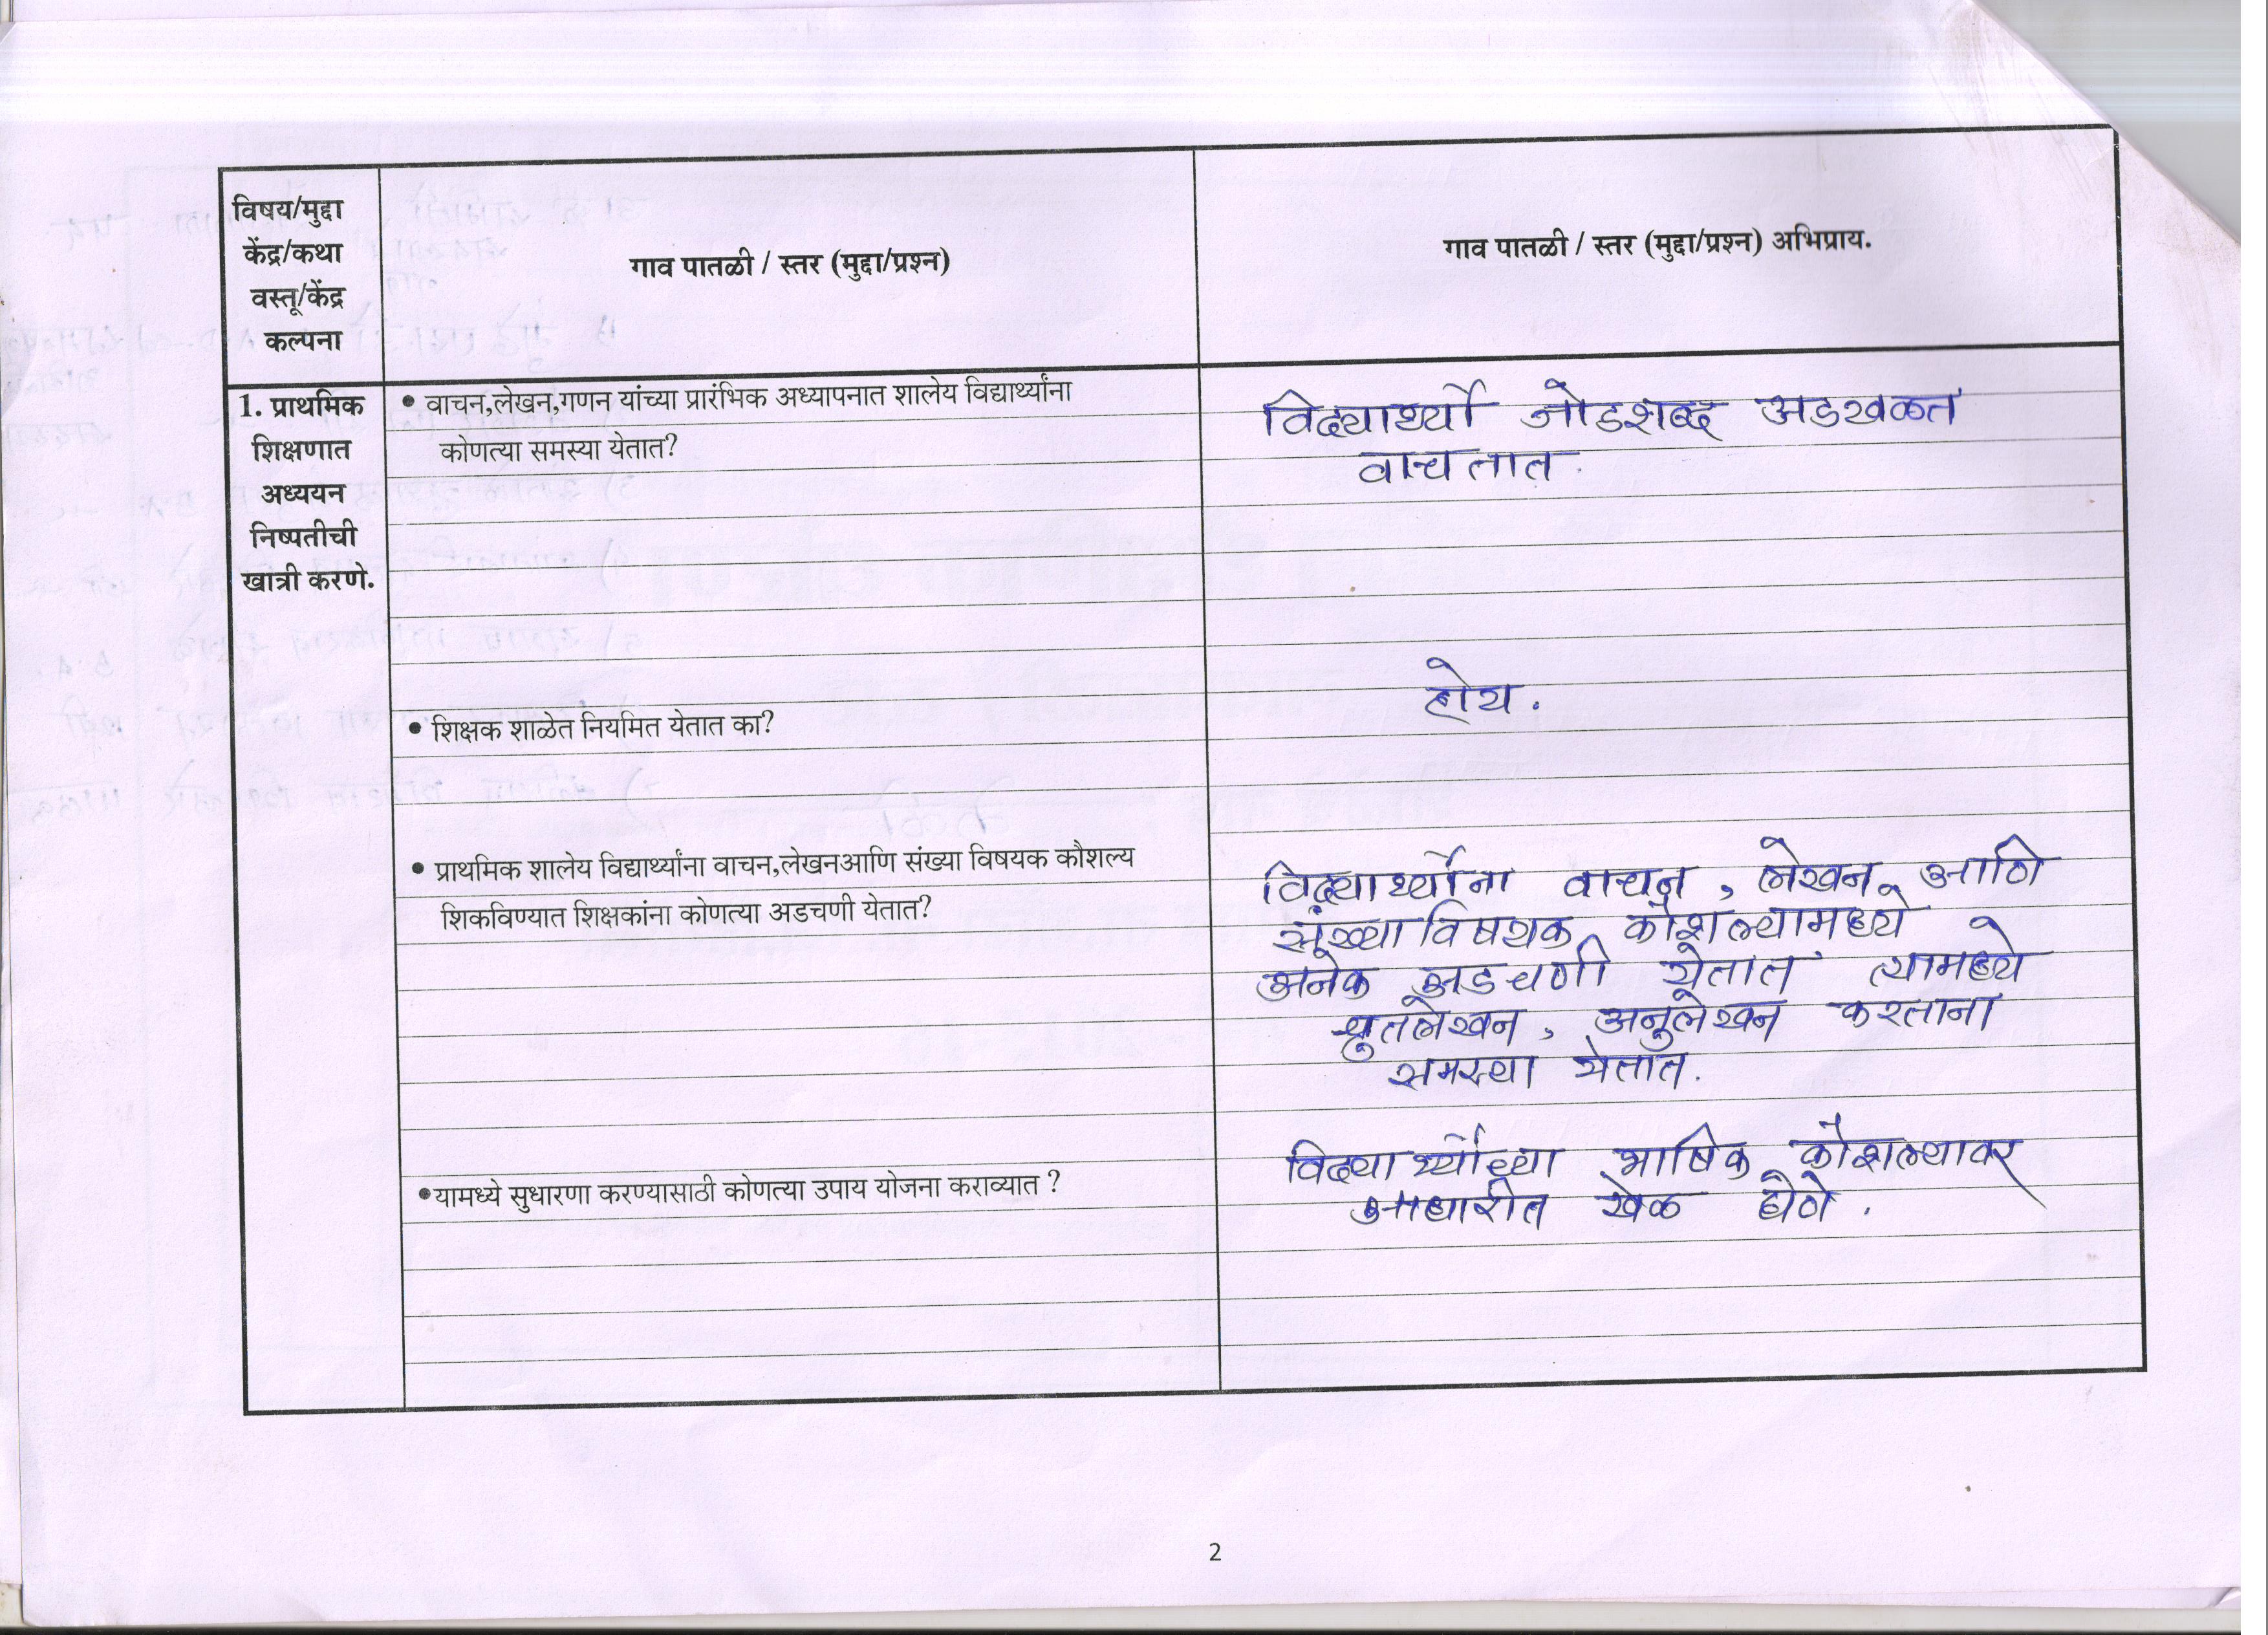 विषय/मुद्दा
केंद्र/कथा
वस्तू/केंद्र
कल्पना
गाव पातळी / स्तर (मुद्दा/प्रश्न)
गाव पातळी / स्तर (मुद्दा/प्रश्न) अभिप्राय.
1. प्राथमिक
शिक्षणात
अध्ययन
निष्पतीची
खात्री करणे.
• वाचन,लेखन,गणन यांच्या प्रारंभिक अध्यापनात शालेय विद्यार्थ्यांना
कोणत्या समस्या येतात?
विद्यार्थ्यी जोडशब्द अडखळत
वाचतात.
• शिक्षक शाळेत नियमित येतात का?
होय.
• प्राथमिक शालेय विद्यार्थ्यांना वाचन,लेखनआणि संख्या विषयक कौशल्य
शिकविण्यात शिक्षकांना कोणत्या अडचणी येतात?
विद्यार्थ्यांना वाचन, लेखन, आणि
संख्याविषयक कौशल्यामध्ये
अनेक अडचणी येतात त्यामध्ये
श्रुतलेखन, अनुलेखन करताना
समस्या येतात.
• यामध्ये सुधारणा करण्यासाठी कोणत्या उपाय योजना कराव्यात ?
विद्यार्थ्यांच्या भाषिक कौशल्यावर
आधारीत खेळ घेणे.
2